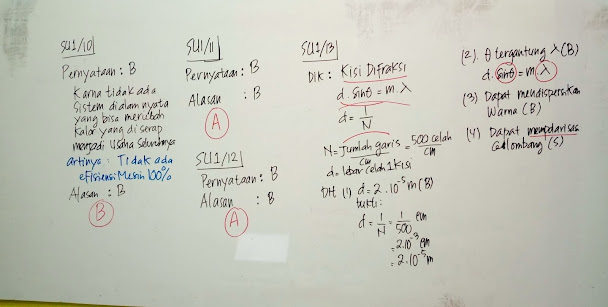 SU1/10
Pernyataan : B
Karna tidak ada
Sistem di alam nyata
yang bisa merubah
Kalor yang di serap
menjadi Usaha Seluruhnya
artinya : Tidak ada
efisiensi Mesin 100%
Alasan : B
B
SU1/11
Pernyataan : B
Alasan : B
A
SU1/12
Pernyataan : B
Alasan : B
A
SU1/13
DIK : Kisi Difraksi
d. sinθ = m. λ
d = 1/N
N = Jumlah garis/cm = 500 celah/cm
d = lebar celah 1 kisi
DH (1) d = 2.10⁻⁵ m (B)
bukti :
d = 1/N = 1/500 cm
= 2.10⁻³ cm
= 2.10⁻⁵ m
(2). θ tergantung λ (B)
d. sinθ = m. λ
(3) Dapat mendispersikan
Warna (B)
(4) Dapat mempolarisasi
Gelombang (S)